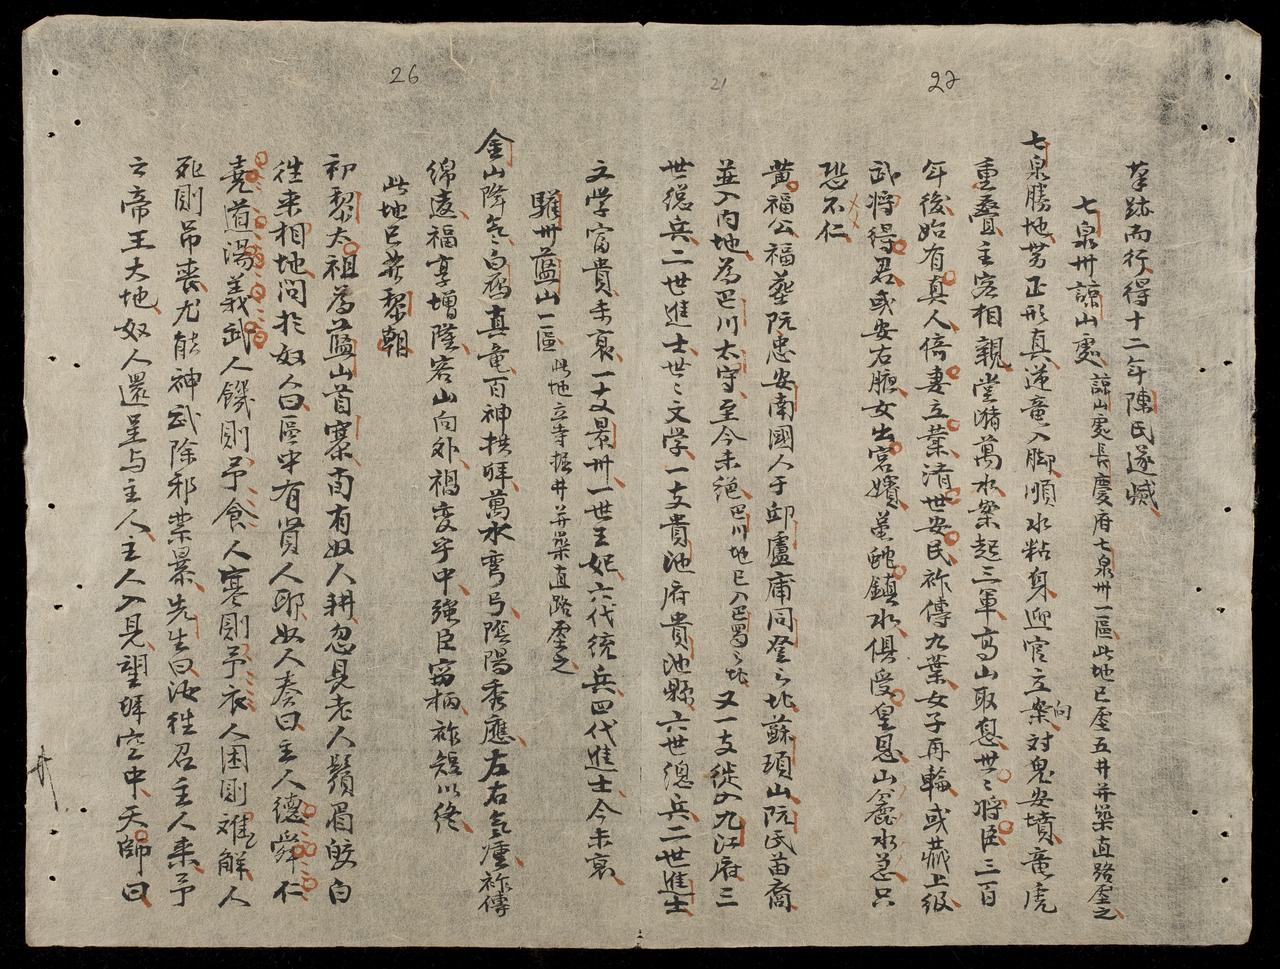 27
21
26
筆跡而行得十二年陳民遂臧
七泉州諒山處 諒山處長慶府七泉州一區此地已壓五井并築直路壓之
七泉勝地勢正形真逆竜入脚順水粘身迎官立案向對鬼安墳竜虎
重疊主客相親堂潴萬水案起三軍高山取憇世〻將臣三百
年後始有真人倚妻立業清世安民祚傳九葉女子再輪或葬上級
武將得君或安右腋女出宮嬪葉醜鎮水俱受皇恩山麄水急只
恐不仁
黄福公福塟阮忠安南國人于邱盧庸同登之北蘇項山阮氏苗裔
並入内地為巴川太守至今未絶 巴川地已入巴蜀之北 又一支徙入九江府三
世總兵二世進士世〻文学一支貴池府貴池縣六世總兵二世進士
文学富貴未衰一支景州一世王妃六代統兵四代進士今未衰
驩州藍山一區 此地立寺掘井并築直路壓之
金山降氣白鴈真竜百神拱拜萬水彎弓陰陽秀應左右氣鍾祚傳
綿遠福享增隆客山向外禍变乎中強臣竊柄祚短以終
此地已葬黎朝
初黎太祖為藍山首寨前有奴人耕忽見老人鬚眉皎白
徃来相地問於奴人曰區中有贤人耶奴人奏曰主人德舜仁
堯道湯義武人饑則予食人寒則予衣人困則难觧人
死則吊喪尤能神武除邪禁暴先生曰汝徃召主人来予
云帝王大地奴人還呈与主人主人入見望拜空中天師曰